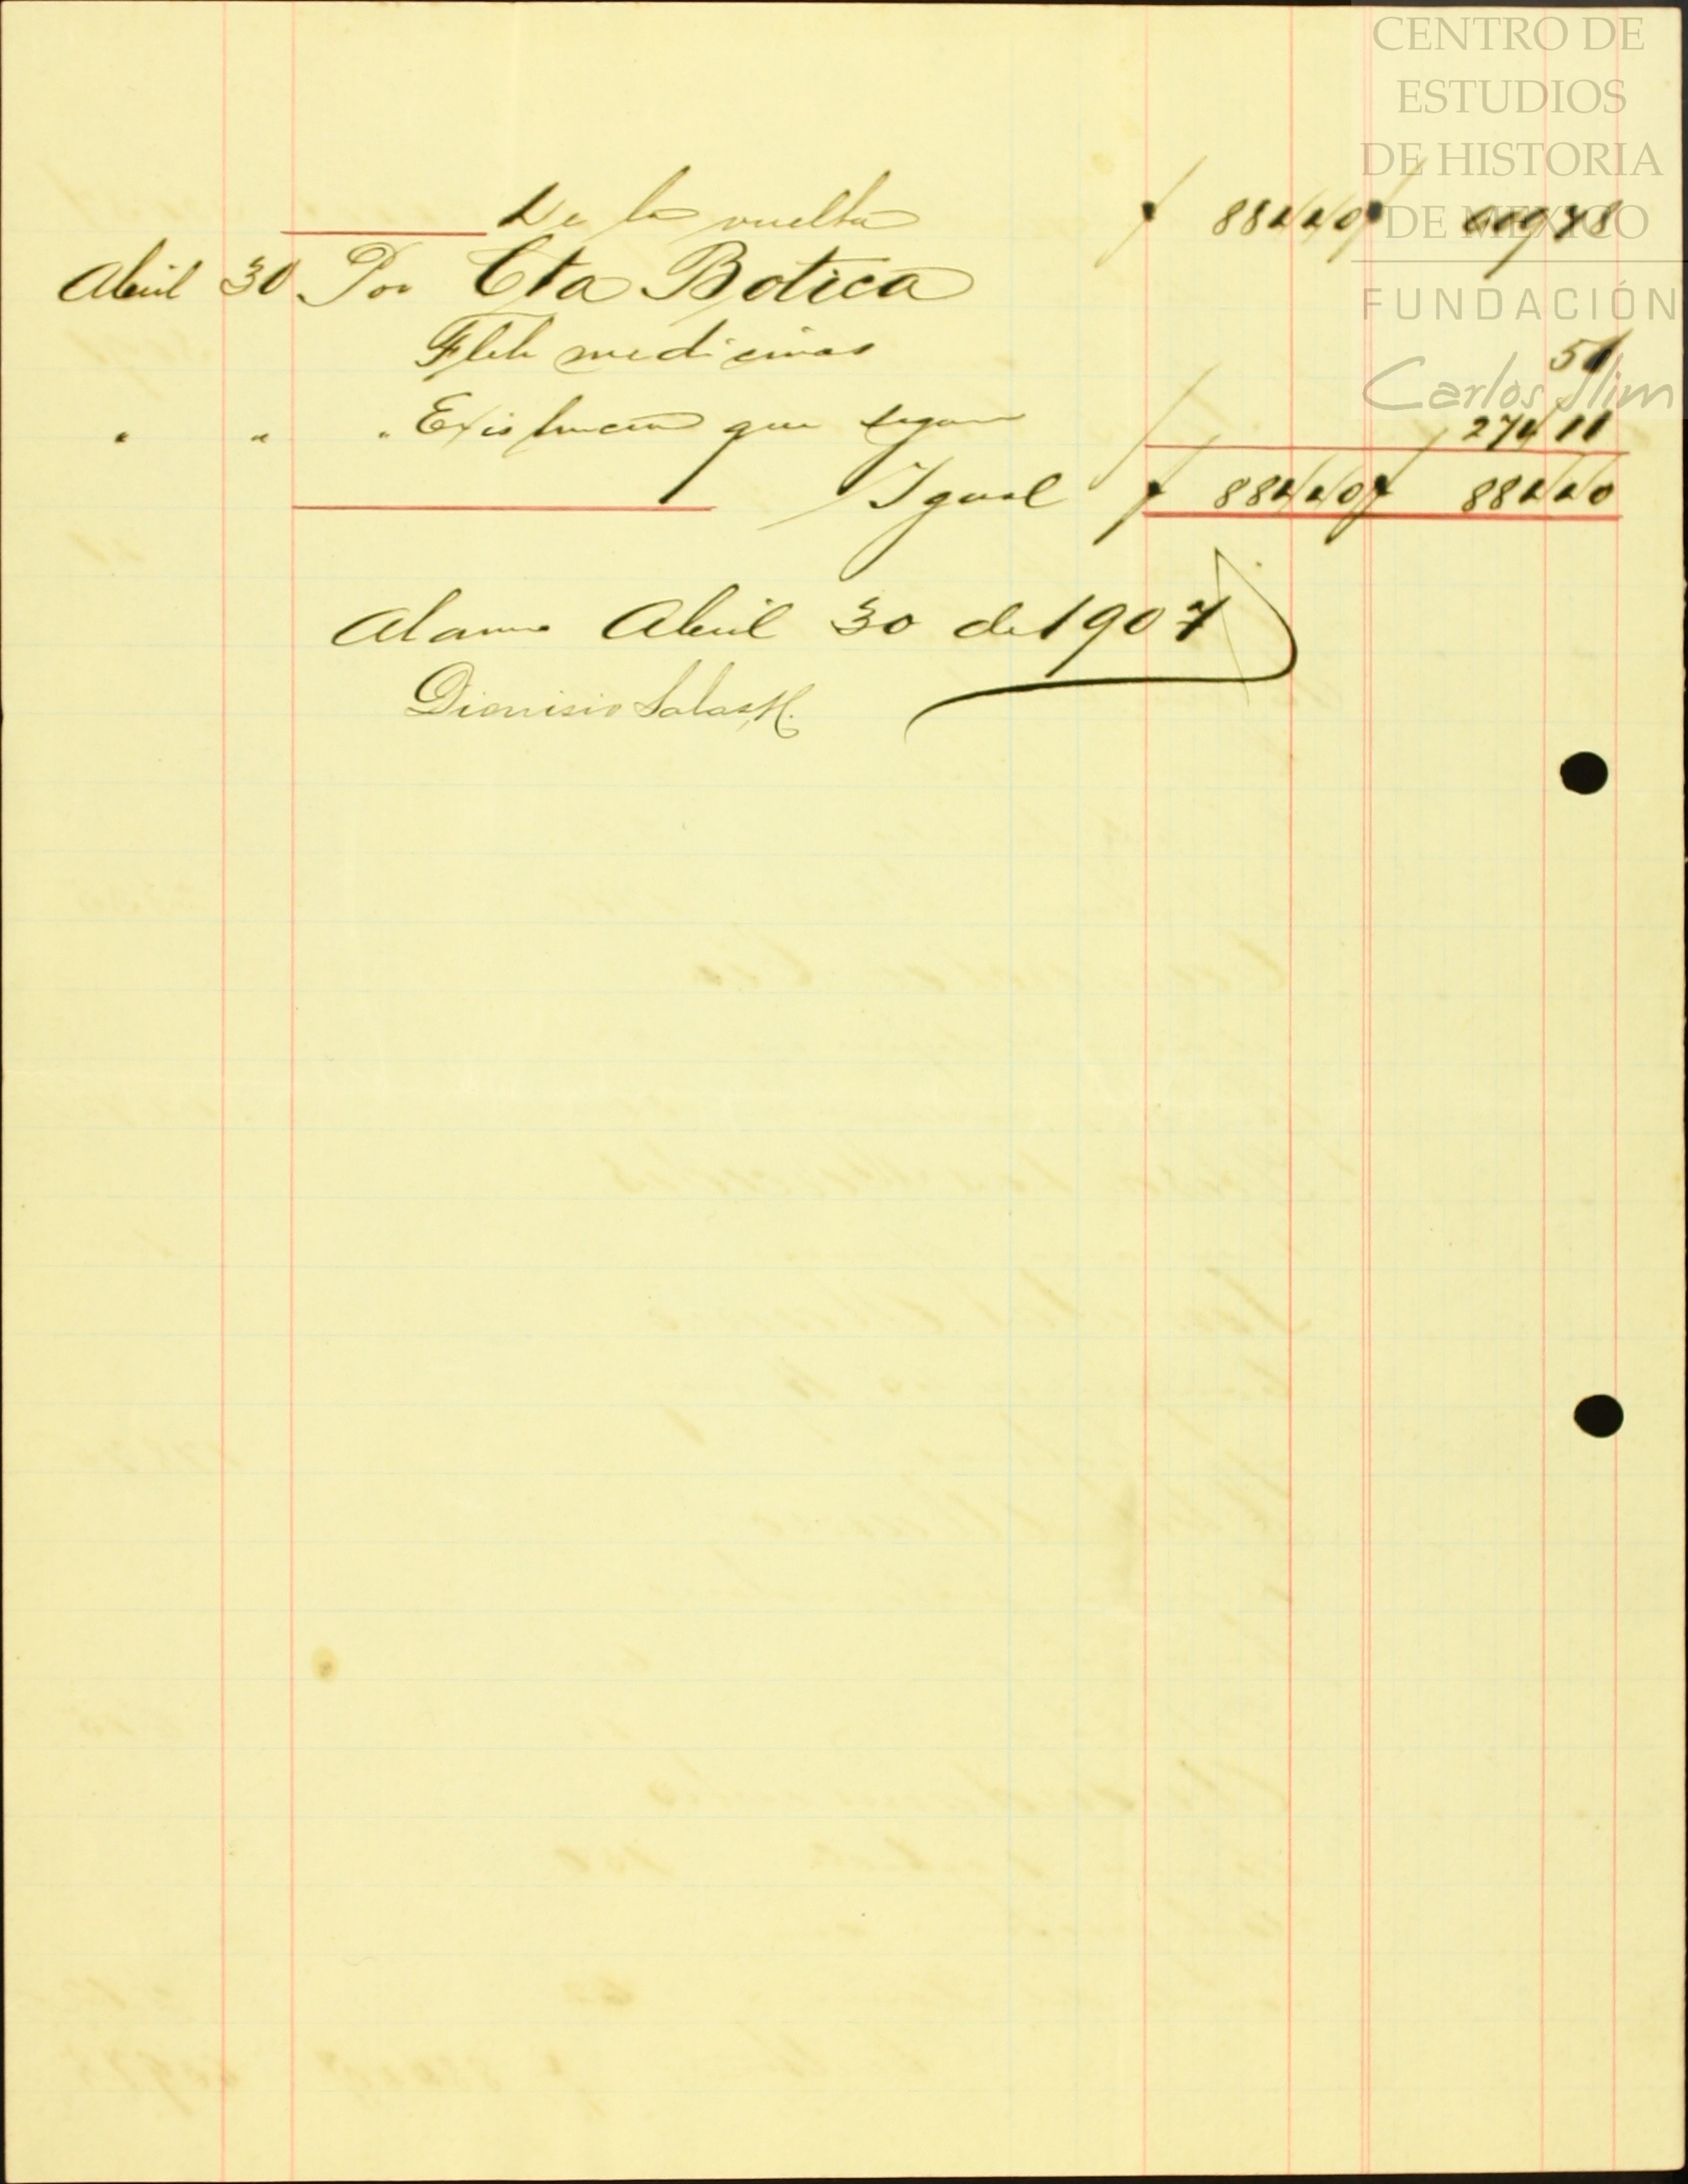 CENTRO DE
ESTUDIOS
DE HISTORIA
DE MEXICO
FUNDACIÓN
Carlos Slim
De la vuelta $ 884 40 $ 609 78
Abril 30 Por Cta Botica
Flete medicinas 51
" " " Existencia que 274 11
Igual $ 884 40 $ 884 40
Alamo Abril 30 de 1907
Dionisio Salas H.